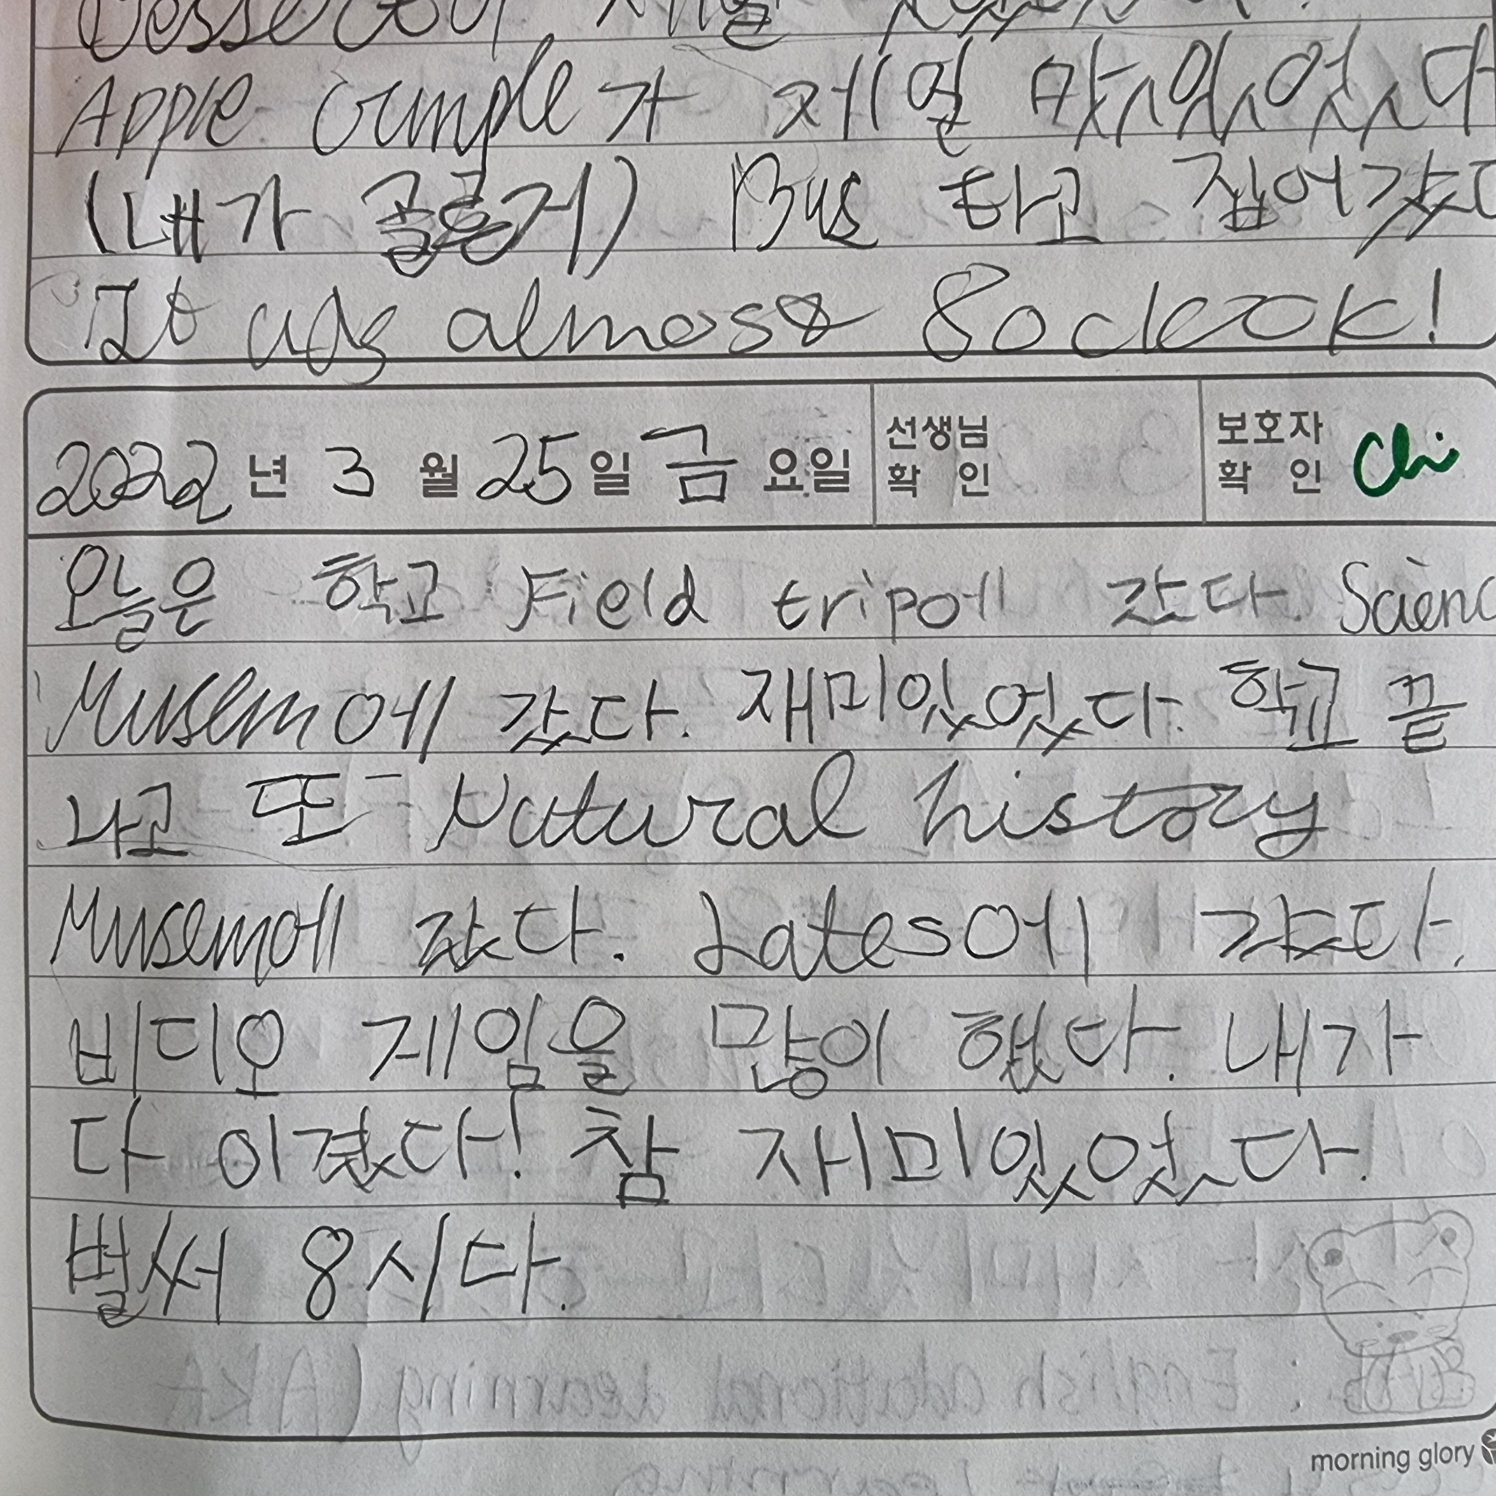 제일
Apple cumple가 제일 맛있었다
(내가 골른거) Bus 타고 집어갔다
It was almost 8o clcok!
2022년 3월 25일 금요일 선생님 확인 보호자 확인 Chi
오늘은 학교 Field trip에 갔다. Scienc
Musem에 갔다. 재미있었다. 학교 끝
나고 또 Natural history
Musem에 갔다. Lates에 갔다.
비디오 게임을 많이 했다. 내가
다 이겼다! 참 재미있었다.
벌써 8시다.
morning glory